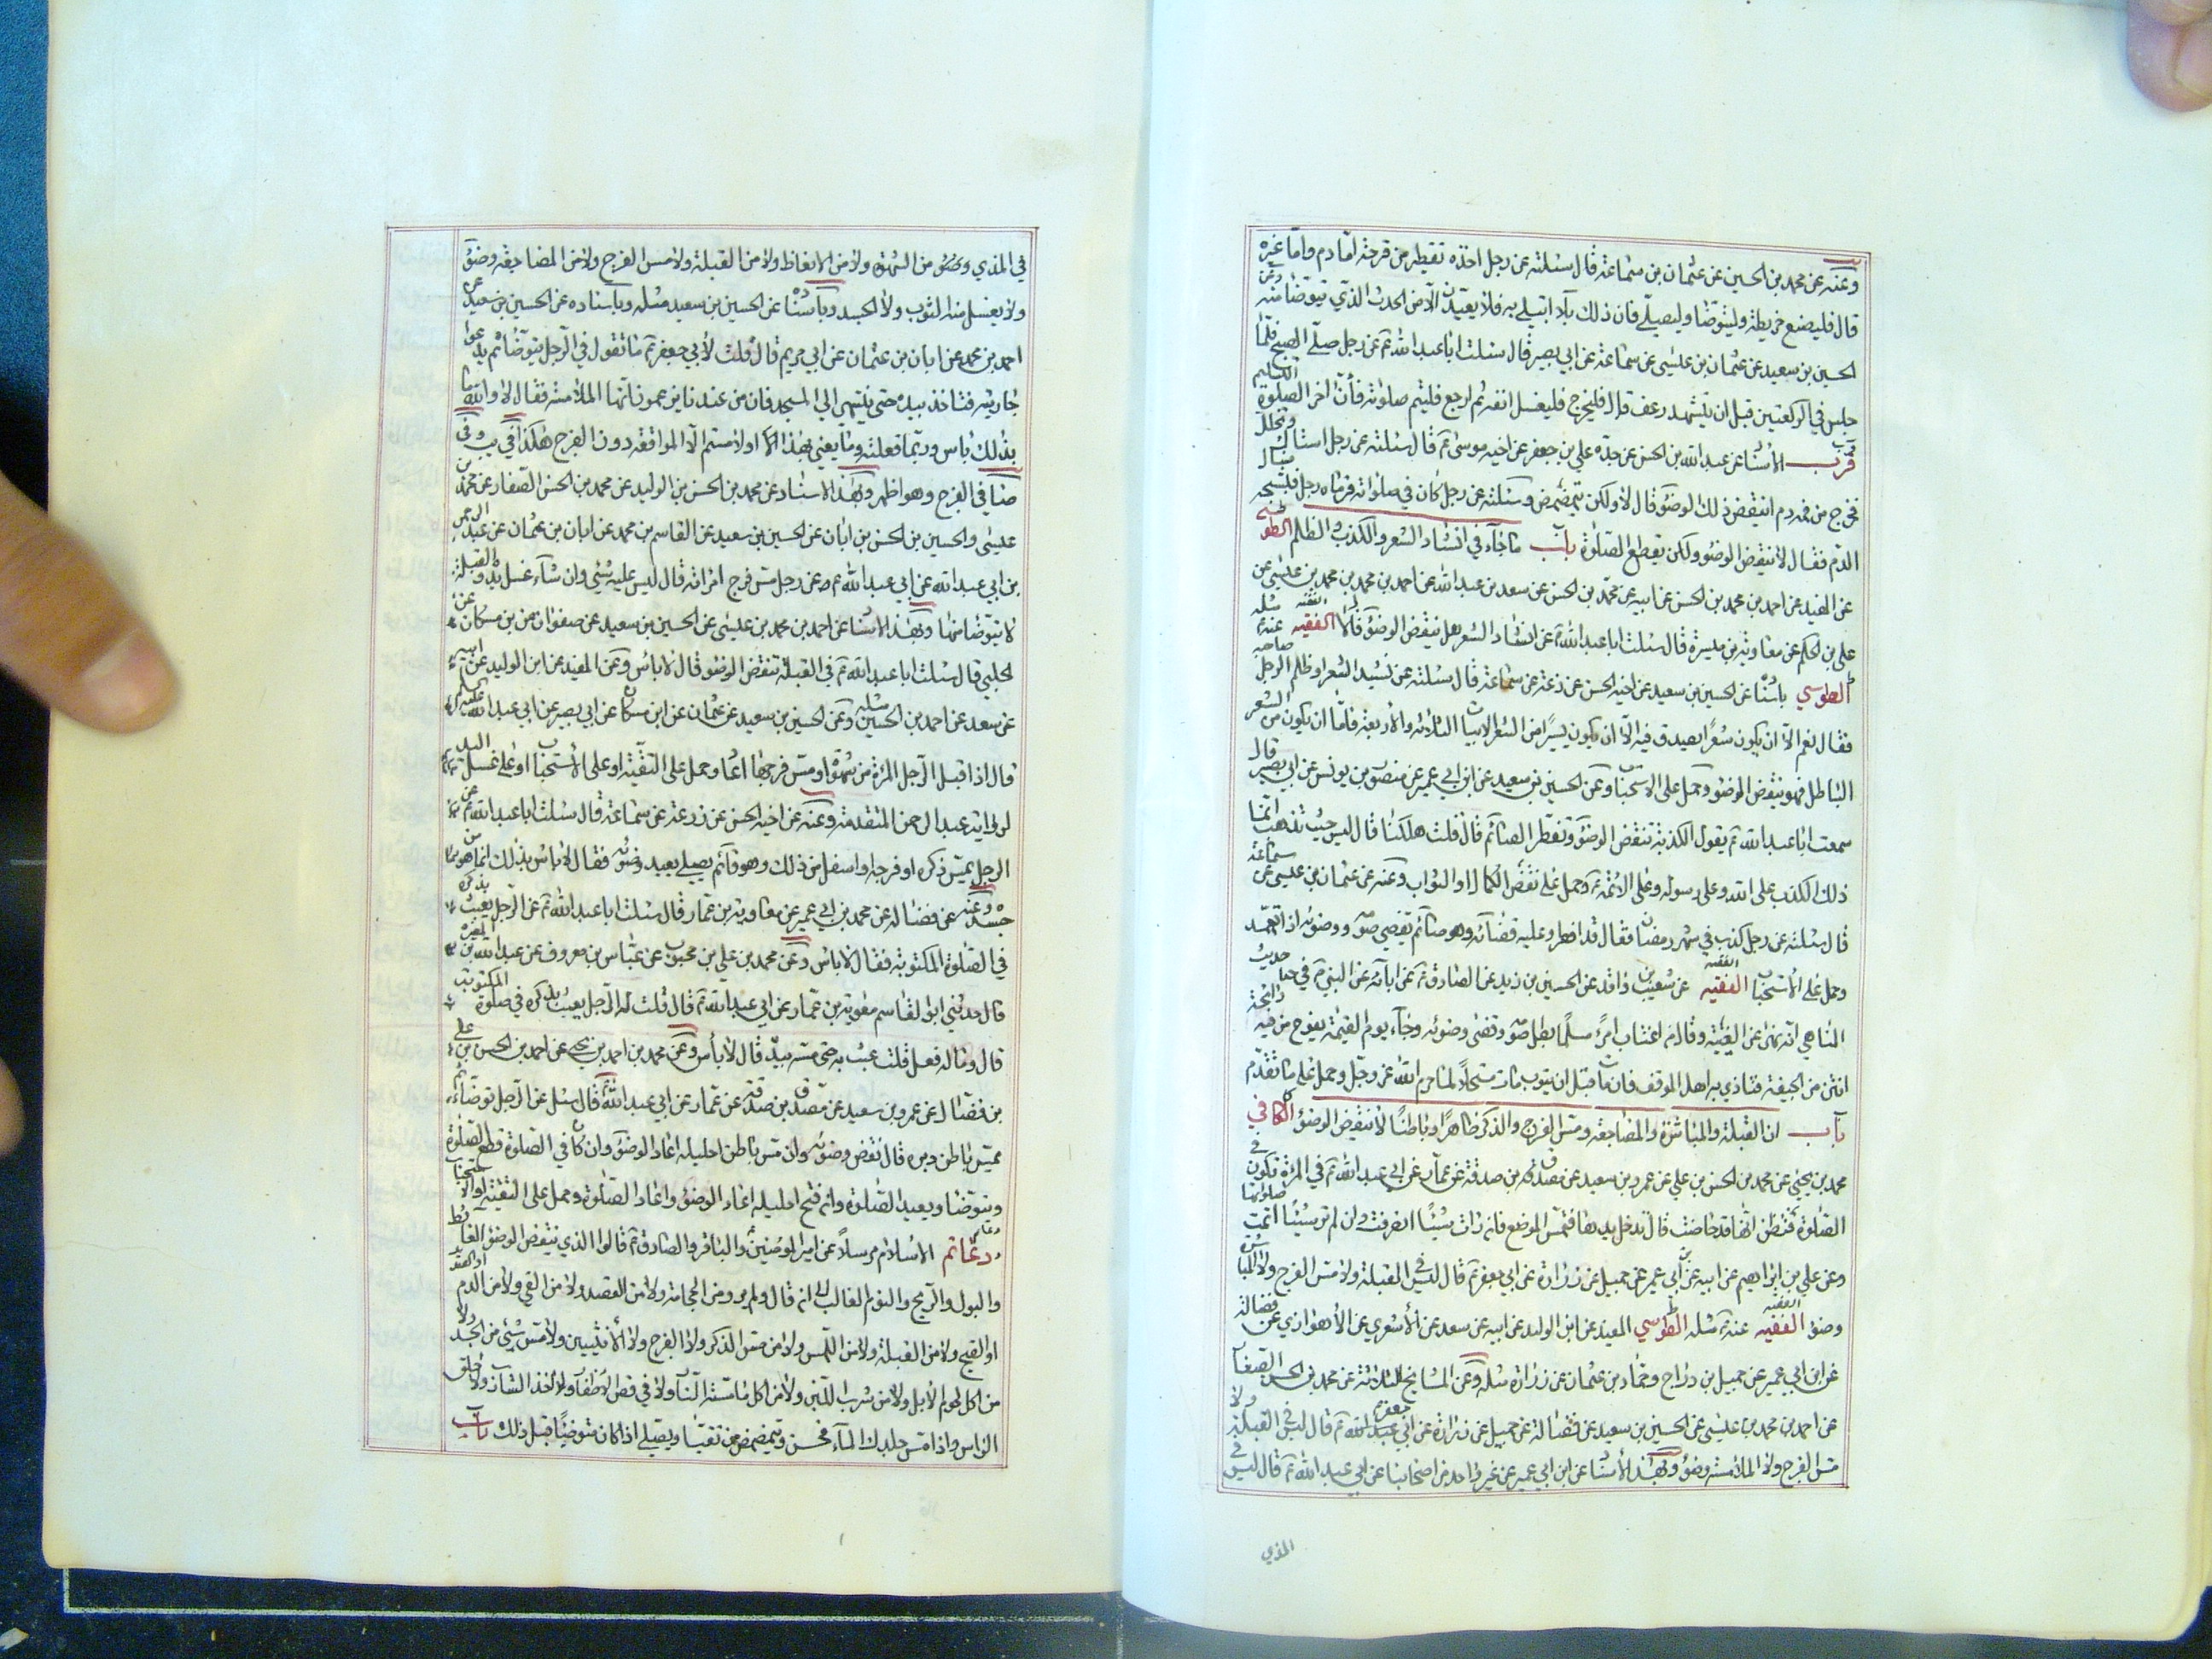 وعنه عن محمد بن الحسين عن عثمان بن سماعة قال سئلته عن رجل اخذه تقطير من قرحة امّا دم وامّا غيره
قال فليضع خريطة وليتوضا وليصلّ فان ذلك بلاء ابتلي به فلا يعيدن الّا من الحدث الذي يتوضا منه وعن
الحسين بن سعيد عن عثمان بن عيسى عن سماعة عن ابي بصير قال سئلت ابا عبد الله ع عن رجل صلّى الصبح فلمّا
جلس في الركعتين قبل ان يتشهد رعف قال فليخرج فليغسل انفه ثم ليرجع فليتم صلوته فان آخر الصلوة التسليم
قرب الاسناد عن عبد الله بن الحسن عن جدّه علي بن جعفر عن اخيه موسى ع قال سئلته عن رجل استاك وتخلل
فخرج من فمه دم اينقض ذلك الوضوء قال لا ولكن يتمضمض وسئلته عن رجل كان في صلوته فرماه رجل فشجه فسال
الدم فقال لا ينقض الوضوء ولكن يقطع الصلوة باب ما جاء في انشاد الشعر والكذب والظلم الطوسي
عن المفيد عن احمد بن محمد بن الحسن عن ابيه عن محمد بن الحسن عن سعد بن عبد الله عن احمد بن محمد بن محمد بن عيسى عن
علي بن الحكم عن معاوية بن ميسرة قال سئلت ابا عبد الله ع عن انشاد الشعر هل ينقض الوضوء قال لا الفقيه عنه مثله
الطوسي باسناده عن الحسين بن سعيد عن اخيه الحسن عن زرعة عن سماعة قال سئلته عن نشيد الشعر او ظلم الرجل صاحبه
فقال نعم الّا ان يكون شعرًا يصدق فيه الّا ان يكون يسيرًا من الشعر الابيات الثلاثة والاربعة فامّا ان يكون من الشعر
الباطل فهو ينقض الوضوء وحمل على الاستحباب وعن الحسين بن سعيد عن ابن ابي عمير عن منصور بن يونس عن ابي بصير قال
سمعت ابا عبد الله ع يقول الكذبة تنقض الوضوء وتفطر الصائم قال قلت هلكنا قال ليس حيث تذهب انّما
ذلك الكذب على الله وعلى رسوله وعلى الائمة ع وحمل على نقض الكمال او الثواب وعنه عن عثمان بن عيسى عن سماعة
قال سئلته عن رجل كذب في شهر رمضان فقال قد افطر وعليه قضائه وهو صائم يقضي صومه ووضوئه اذا تعمّد
وحمل على الاستحباب الفقيه عن شعيب بن واقد عن الحسين بن زيد عن الصادق ع عن ابائه عن النبي ع في حديث
المناهي انه نهى عن الغيبة وقال من اغتاب امرءً مسلمًا بطل صومه ونقض وضوئه وجاء يوم القيمة يفوح من فيه رائحة
انتن من الجيفة فتاذي به اهل الموقف فان مات قبل ان يتوب مات مستحلًّا لما حرم الله عز وجل وحمل على ما تقدّم
باب ان القبلة والمباشرة والمضاجعة ومس الفرج والذكر ظاهرًا وباطنًا لا ينقض الوضوء الكافي
محمد بن يحيى عن محمد بن الحسن بن علي عن عمرو بن سعيد عن مصدق بن صدقة عن عمار عن ابي عبد الله ع في المرءة تكون في
الصلوة فتظن انّها قد حاضت قال تدخل يدها فتمس الموضع فان رات شيئًا انصرفت وان لم تر شيئًا اتمت صلوتها
وعن علي بن ابراهيم عن ابيه عن ابن ابي عمير عن جميل عن زرارة عن ابي جعفر ع قال ليس في القبلة ولا مس الفرج ولا المباشرة
وضوء الفقيه عنه ع مثله الطوسي المفيد عن ابن الوليد عن ابيه عن سعد عن الاشعري عن الاهوازي عن فضالة
عن ابن ابي عمير عن جميل بن دراج وحماد بن عثمان عن زرارة مثله وعن المشايخ الثلاثة عن محمد بن الحسن الصفار
عن احمد بن محمد بن عيسى عن الحسين بن سعيد عن فضالة عن جميل عن زرارة عن ابي جعفر ع قال ليس في القبلة ولا
مس الفرج ولا الملامسة وضوء وبهذا الاسناد عن ابن ابي عمير عن غير واحد من اصحابنا عن ابي عبد الله ع قال ليس في
المذي
في المذي وضوء من الشهوة ولا من الانعاظ ولا من القبلة ولا مس الفرج ولا من المضاجعة وضوء
ولا يغسل منه الثوب ولا الجسد وباسناده عن الحسين بن سعيد مثله وباسناده عن الحسين بن سعيد عن
احمد بن محمد عن ابان بن عثمان عن ابي مريم قال قلت لابي جعفر ع ما تقول في الرجل يتوضا ثم يدعوا
جاريته فتاخذ بيده حتى ينتهي الى المسجد فان من عندنا يزعمون انّها الملامسة فقال لا والله ما
بذلك باس وربما فعلته وما يعني بهذا او لامستم الّا المواقعة دون الفرج هكذا في
وهو اظهر وبهذا الاسناد عن محمد بن الحسن بن الوليد عن محمد بن الحسن الصفار عن محمد بن
عيسى والحسين بن الحسن بن ابان عن الحسين بن سعيد عن القاسم بن محمد عن ابان بن عثمان عن عبد الرحمن
بن ابي عبد الله عن ابي عبد الله ع عن رجل مس فرج امراته قال ليس عليه شئ وان شاء غسل يده والقبلة
لا يتوضا منها وبهذا الاسناد عن احمد بن محمد بن عيسى عن الحسين بن سعيد عن صفوان عن بن مسكان عن
لحلبي قال سئلت ابا عبد الله ع في القبلة تنقض الوضوء قال لا باس وعن المفيد عن ابن الوليد عن ابيه
عن سعد عن احمد بن الحسين مثله وعن الحسين بن سعيد عن عثمان عن ابن مسكان عن ابي بصير عن ابي عبد الله عليه السلام
قال اذا قبل الرجل المرءة من شهوة او مس فرجها اعاد وحمل على التقية او على الاستحباب او على غسل اليد
لرواية عبد الرحمن المتقدمة وعنه عن اخيه الحسن عن زرعة عن سماعة قال سئلت ابا عبد الله ع عن
الرجل يمس ذكره او فرجه او اسفل من ذلك وهو قائم يصلي يعيد وضوئه فقال لا باس بذلك انما هو من
جسده وعنه عن فضالة عن محمد بن ابي عمير عن معاوية بن عمار قال سئلت ابا عبد الله ع عن الرجل يعبث بذكره
في الصلوة المكتوبة فقال لا باس وعن محمد بن علي بن محبوب عن عباس بن معروف عن عبد الله بن المغيرة
قال حدثني ابو القاسم معوية بن عمار عن ابي عبد الله ع قال قلت له الرجل يعبث بذكره في صلوة المكتوبة
قال وما له فعل قلت عبث به حتى مسه بيده قال لا بأس وعن محمد بن احمد بن يحيى عن احمد بن الحسن بن علي
بن فضال عن عمرو بن سعيد عن مصدق بن صدقة عن عمار عن ابي عبد الله ع قال سئل عن الرجل توضا ثم
يمس باطن دبره قال نقض وضوئه وان مس باطن احليله اعاد الوضوء وان كان في الصلوة قطع الصلوة
ويتوضا ويعيد الصلوة وان فتح احليله اعاد الوضوء واعاد الصلوة وحمل على التقية او الاستحباب
دعائم الاسلام مرسلًا عن امير المؤمنين والباقر والصادق ع قالوا الذي ينقض الوضوء الغائط
والبول والريح والنوم الغالب الى انه قال ولم يرو من الحجامة ولا من الفصد ولا من القي ولا من الدم او الصديد
او القيح ولا من القبلة ولا من اللمس ولا من مس الذكر ولا الفرج ولا الانثيين ولا مس شئ من الجسد ولا
من اكل لحوم الابل ولا من شرب اللبن ولا من اكل ما مسته النار ولا في قص الاظفار ولا اخذ الشارب ولا حلق
الراس واذا مس جلدك الماء فحسن ويتمضمض من تقيّا ويصلي اذا كان متوضيًا قبل ذلك باب